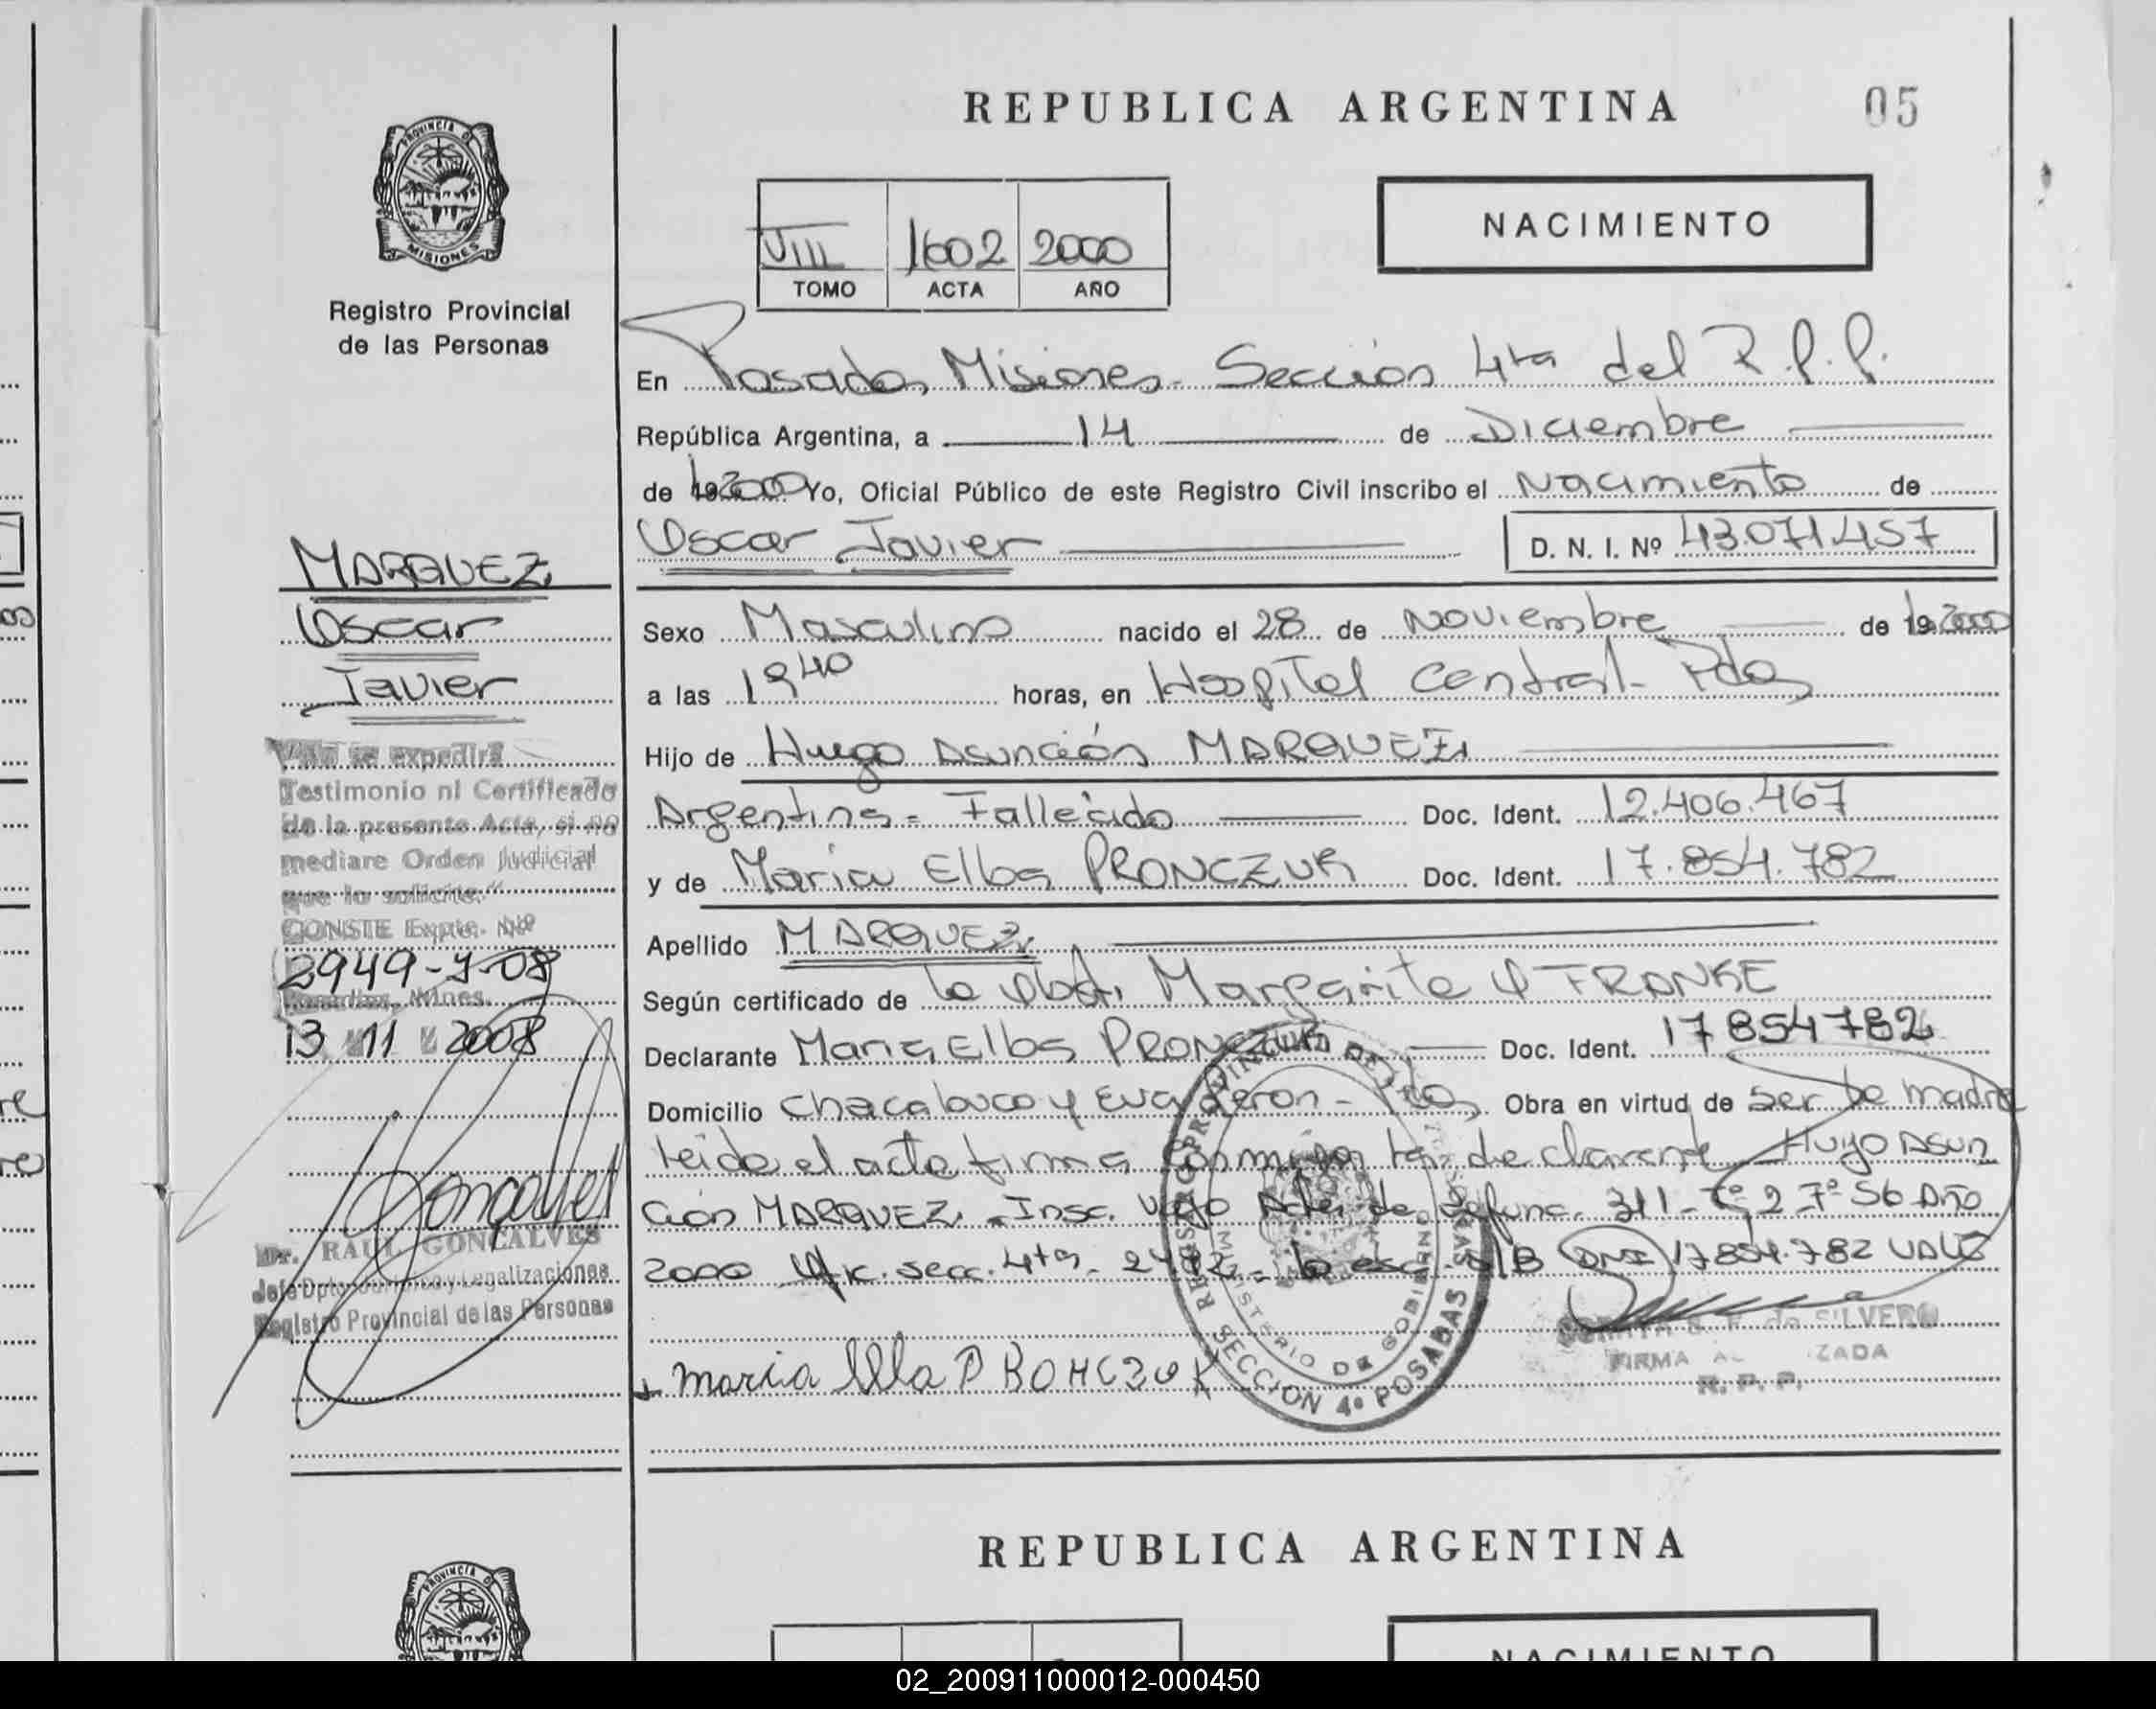 REPUBLICA ARGENTINA
05
PROVINCIA DE
MISIONES
Registro Provincial
de las Personas
VIII 1602 2000
TOMO ACTA AÑO
NACIMIENTO
En Posadas, Misiones - Sección 4ta del R.P.P.
República Argentina, a 14 de Diciembre
de 19 2000 Yo, Oficial Público de este Registro Civil inscribo el Nacimiento de
Oscar Javier D. N. I. Nº 43.071.457
MARQUEZ
Oscar
Javier
Sexo Masculino nacido el 28 de Noviembre de 19 2000
a las 19 40 horas, en Hospital Central - Pdas
Hijo de Hugo Asunción MARQUEZ
Argentina - Fallecido Doc. Ident. 12.406.467
y de Maria Elba PRONCZUK Doc. Ident. 17.854.782
Apellido MARQUEZ
Según certificado de la Obst. Margarita FRANKE
Declarante Maria Elba PRONCZUK Doc. Ident. 17854782
Domicilio Chacabuco y Eva Peron - Pdas Obra en virtud de Ser la madre
Leida el acta firma conmigo la declarante Hugo Asun
ción MARQUEZ - Insc. Acta de defunc. 311 - Tº 2 Fº 56 Año
2000 secc. 4ta - DNI 17854.782 VALE
maria Elba PRONCZUK
se expedira
Testimonio ni Certificado
de la presente Acta, si no
mediare Orden Judicial
que lo solicite."
CONSTE Expte. Nº
2949-J-08
Posadas, Mnes.
13 11 2008
Dr. RAUL GONCALVES
Jefe Dpto. Jurídico y Legalizaciones
Registro Provincial de las Personas
MINISTERIO DE GOBIERNO
SECCION 4º POSADAS
de SILVERO
FIRMA
R. P. P.
REPUBLICA ARGENTINA
PROVINCIA DE
NACIMIENTO
02_200911000012-000450